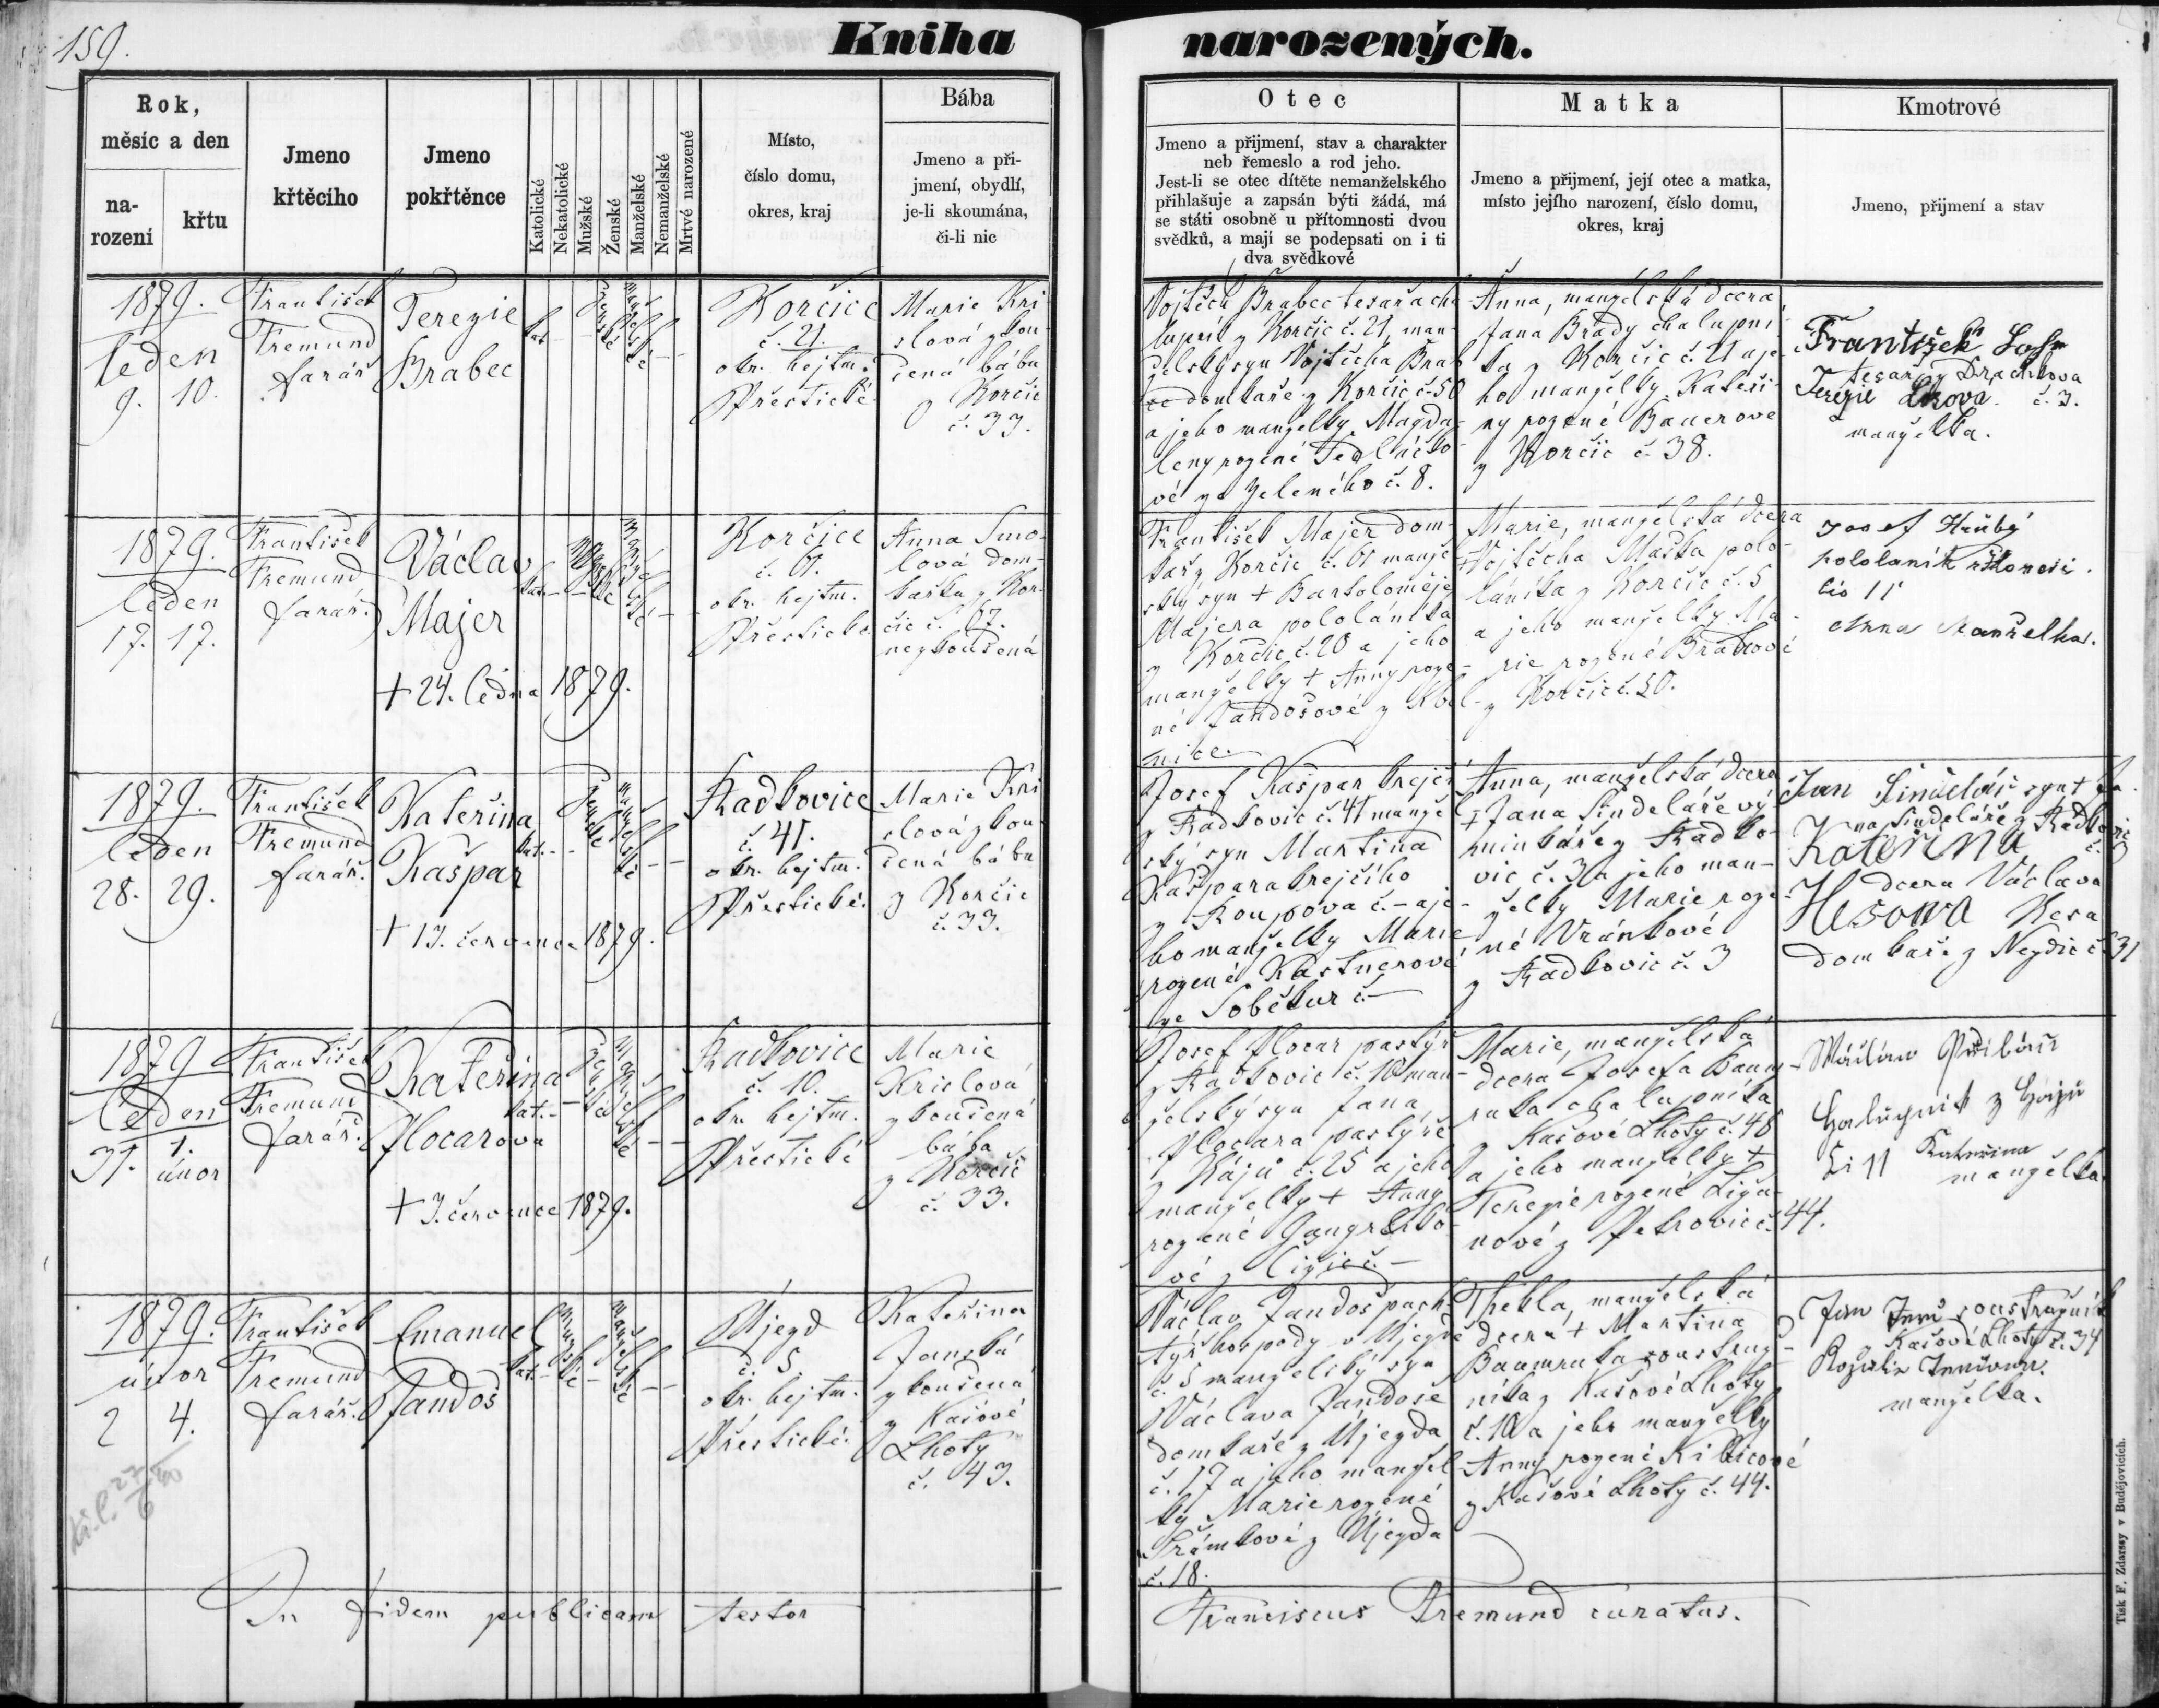 159.
Kniha narozených.
Rok,
měsíc a den
na-
rození
křtu
Jmeno
křtěcího
Jmeno
pokřtěnce
Katolické
Nekatolické
Mužské
Ženské
Manželské
Nemanželské
Mrtvé narozené
Místo,
číslo domu,
okres, kraj
Bába
Jmeno a při-
jmení, obydlí,
je-li skoumána,
či-li nic
Otec
Jmeno a přijmení, stav a charakter
neb řemeslo a rod jeho.
Jest-li se otec dítěte nemanželského
přihlašuje a zapsán býti žádá, má
se státi osobně u přítomnosti dvou
svědků, a mají se podepsati on i ti
dva svědkové
Matka
Jmeno a přijmení, její otec a matka,
místo jejího narození, číslo domu,
okres, kraj
Kmotrové
Jmeno, přijmení a stav
1879.
leden
9. 10.
František
Fremund
farář
Terezie
Brabec
kat.
Ženské
Manželské
Korčice
č. 21.
okr. hejtm.
Přestické.
Marie Kri-
slová zkou-
šená bába
z Korčic
č. 33.
Vojtěch Brabec tesař a cha-
lupník z Korčic č. 21, man-
želský syn Vojtěcha Brab-
ce domkaře z Korčic č. 50
a jeho manželky Magda-
leny rozené Sedláčko-
vé ze Zeleného č. 8.
Anna, manželská dcera
Jana Brady chalupní-
ka z Korčic č. 21 a je-
ho manželky Kateři-
ny rozené Bauerove
z Korčic č. 38.
František
tesař z Drachkova
Terezie č. 3.
manželka.
1879.
leden
17. 17.
František
Fremund
farář.
Václav
Majer
kat.
Mužské
Manželské
+ 24. ledna 1879.
Korčice
č. 61.
okr. hejtm.
Přestické.
Anna Smo-
lová dom-
kařka z Kor-
čic č. 67.
nezkoušená
František Majer dom-
kař z Korčic č. 61 manžel-
ský syn + Bartoloměje
Majera pololáníka
z Korčic č. 20 a jeho
manželky + Anny roze-
né Jandošové z Kbel-
nice.
Marie, manželská dcera
Vojtěcha Maška polo-
láníka z Korčic č. 5
a jeho manželky Ma-
rie rozené Bradové
z Korčic č. 20.
Josef Hrubý
pololaník
čis 11
Anna Manželka.
1879.
leden
28. 29.
František
Fremund
farář.
Kateřina
Kašpar
kat.
Ženské
Manželské
+ 13. července 1879.
Radkovice
č. 41.
okr. hejtm.
Přestické.
Marie Kri
slová zkou-
šená bába
z Korčic
č. 33.
Josef Kašpar krejčí
z Radkovic č. 41 manžel-
ský syn Martina
Kašpara krejčího
z Roupova č. – a je-
ho manželky Marie
rozené Kastnerové
ze Soběkur č. –
Anna, manželská dcera
+ Jana Sindeláře vý-
minkáře z Radko-
vic č. 3 a jeho man-
želky Marie roze-
né Vránkové
z Radkovic č. 3
Jan Sindelář syn + Ja-
na Sindeláře z Radkovic
Kateřina č. 3
dcera Václava
Hesowa Hesa
domkaře z Nezdic č. 31
1879
leden
31. 1.
únor
František
Fremund
farář.
Kateřina
Flocarova
kat.
Ženské
Manželské
+ 3. července 1879.
Radkovice
č. 10.
okr. hejtm.
Přestické
Marie
Krislová
zkoušená
bába
z Korčic
č. 33.
Josef Flocar pastýř
z Radkovic č. 10 man-
želský syn Jana
Flocara pastýře
z Hájů č. 25 a jeho
manželky + Anny
rozené
vé z č. –
Marie, manželská
dcera Josefa Baum-
ruka chalupníka
z Kašové Lhoty č. 48
a jeho manželky +
Terezie rozené
nové z Petrovic č. 44.
Kateřina
manželka
1879.
únor
2 4.
František
Fremund
farář.
Emanuel
Jandoš
kat.
Mužské
Manželské
Újezd
č. 5.
okr. hejtm.
Přestické.
Kateřina
Janská
zkoušená
z Kašové
Lhoty
č. 43.
Václav Jandoš pach-
týř hospody v Újezdě
č. 5 manželský syn
Václava Jandoše
domkaře z Újezda
č. 17 a jeho manžel-
ky Marie rozené
Šrámkové z Újezda
č. 18.
Thekla, manželská
dcera + Martina
Baumruka soustruž-
níka z Kašové Lhoty
č. 10 a jeho manželky
Anny rozené Kibicové
z Kašové Lhoty č. 44.
Jan soustružník
z Kašové Lhoty č. 34
Rozalie
manželka.
In fidem publicam testor
Franciscus Fremund curatus.
Tisk F. Zdarssy v Budějovicích.